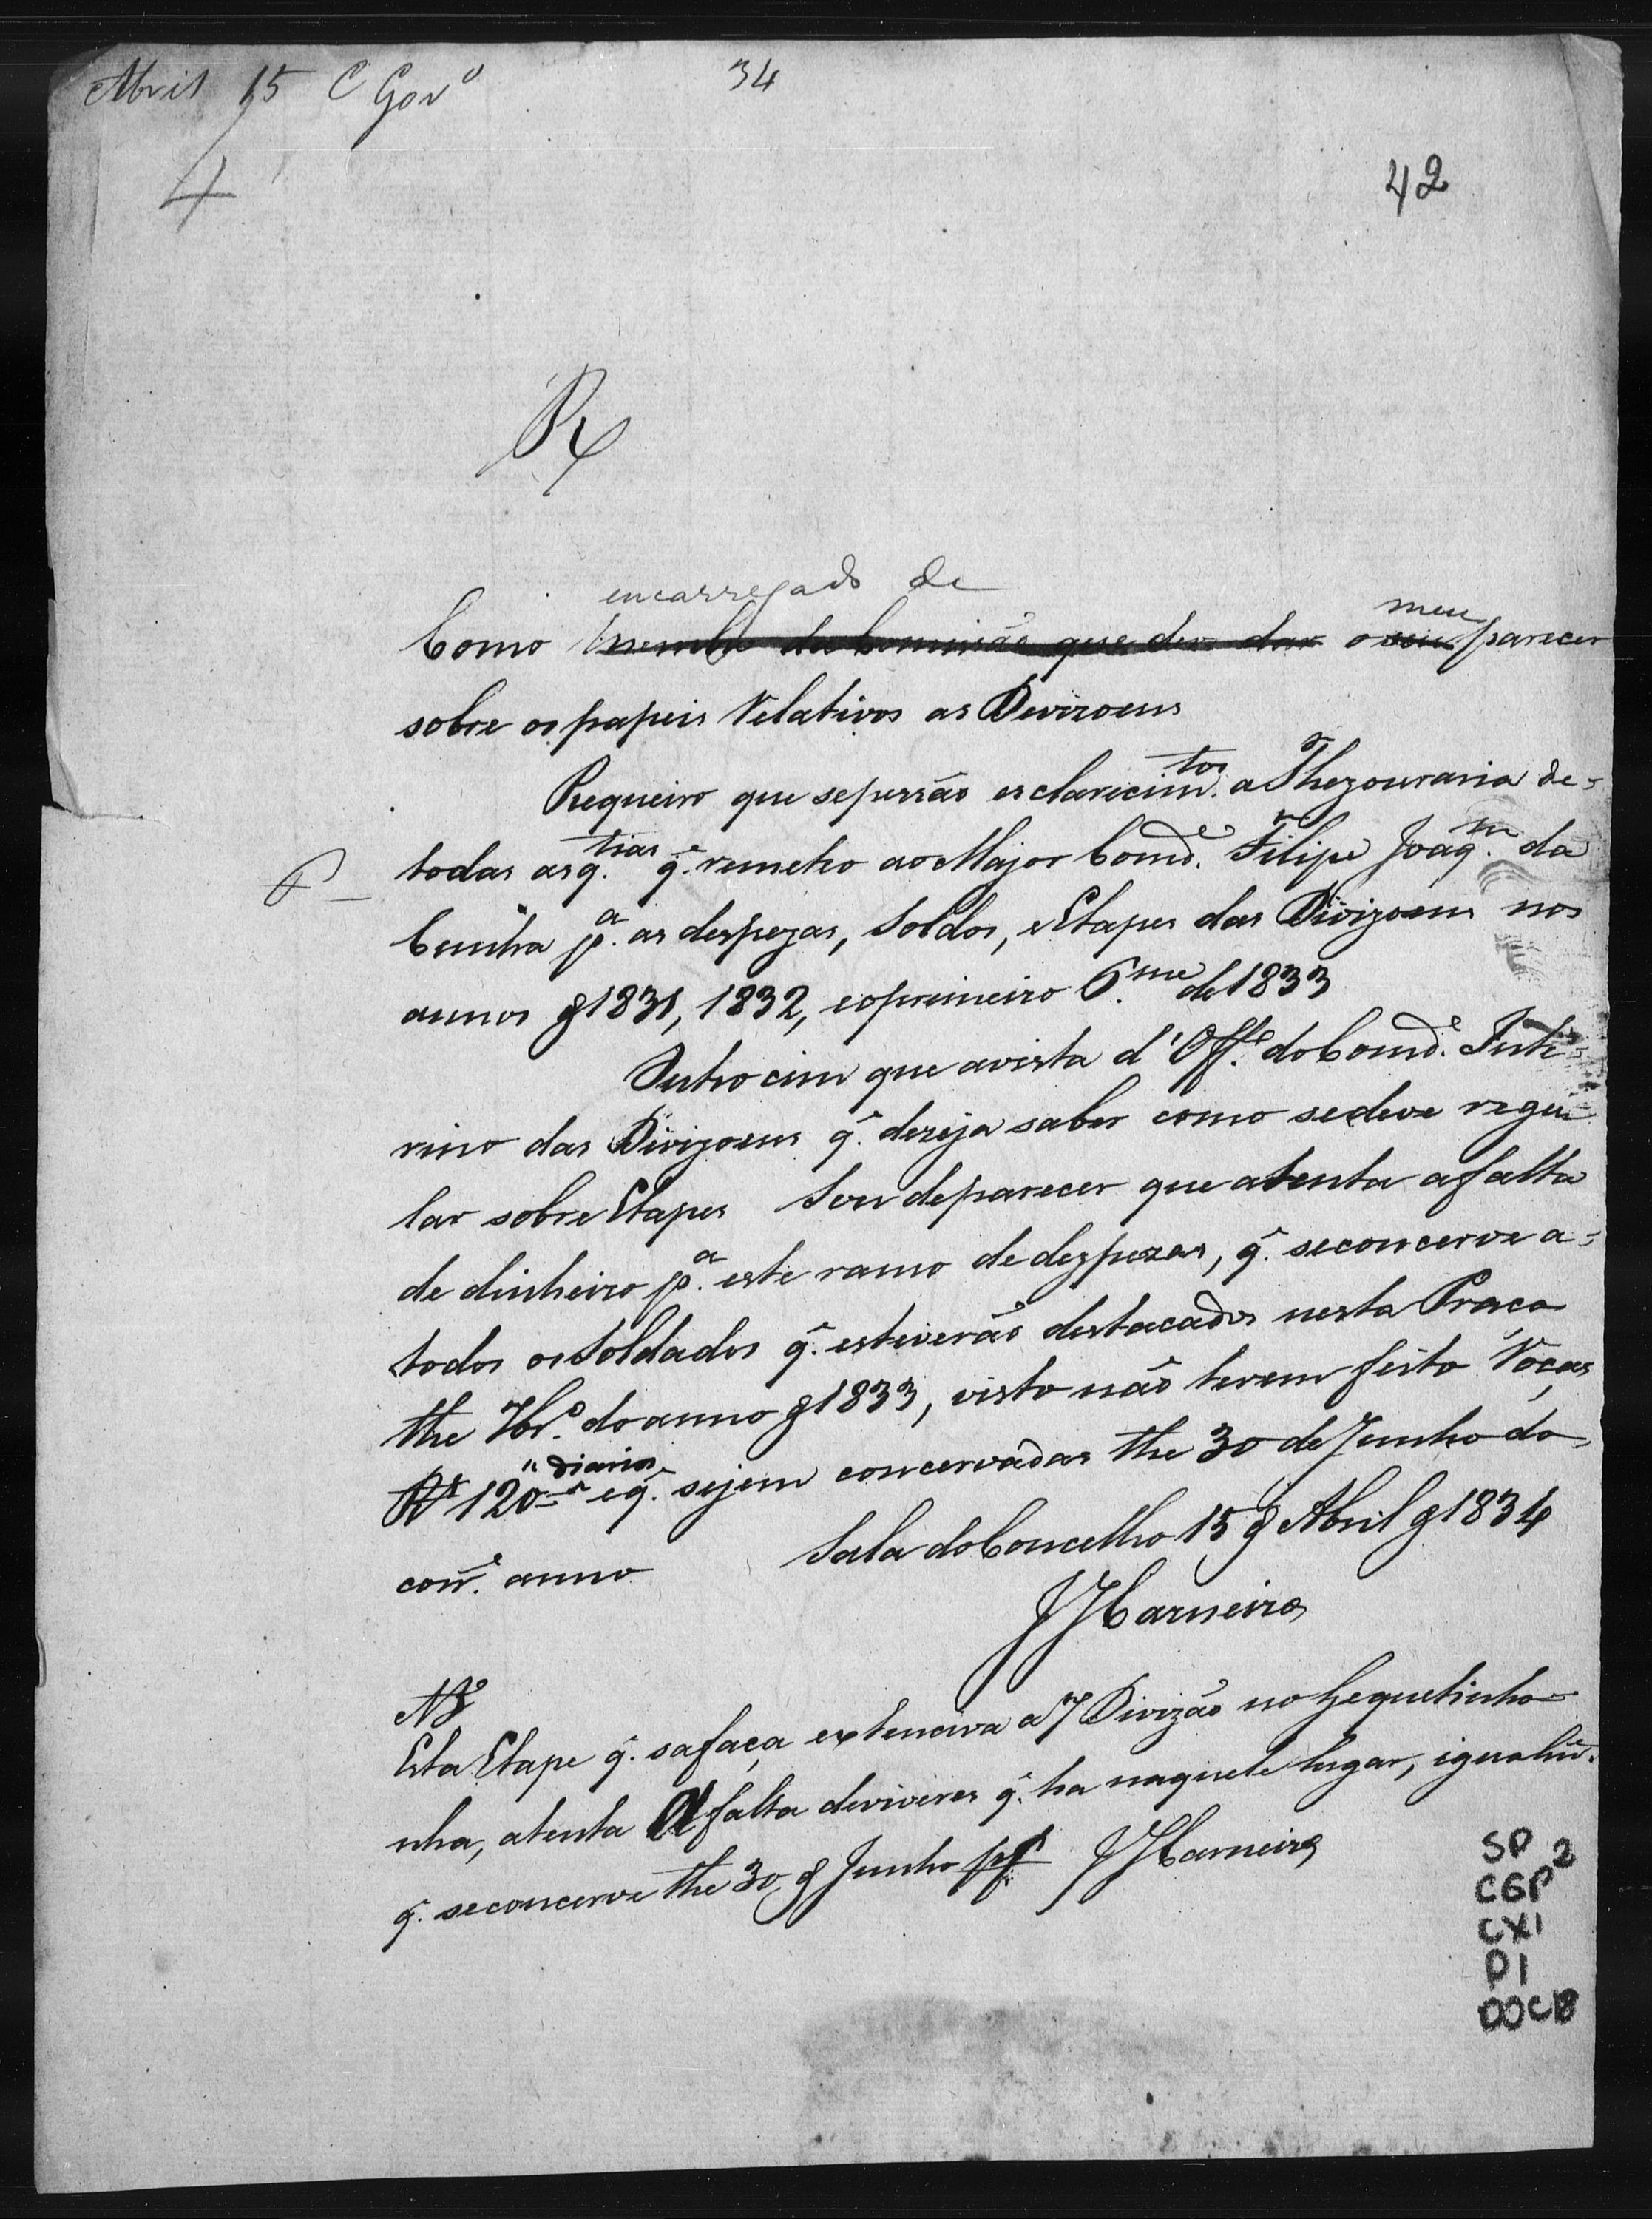 Abril 15 C Govº 34
4
42
R
encarregado de
Como membro da Comissão que deve dar o seu meu parecer
sobre os papeis Relativos as Divizoens
Requeiro que se pessão esclarecimtos. a Thezouraria de-
todas as q.tias q̃. remeteo ao Major Comde. Filipe Joaqm. da
Cunha pa. as despezas, Soldos, e Etapes das Divizoens nos
annos d 1831, 1832, e o primeiro 6.me de 1833
Outro cim que a vista d'Offo. do Comde. Inte-
rino das Divizoens q̃. dezeja saber como se deve regu-
lar sobre Etapes Sou de parecer que atenta a falta
de dinheiro pa. este ramo de despezas, q̃. se concerve a-
todos os Soldados q̃. estiverão destacados nesta Praça
the 7bro. do anno d 1833, visto não terem feito Roças
Rs 120 " diarios e q̃. sejem concervadas the 30 de Junho do
corre. anno Sala do Concelho 15 d Abril d 1834
JJCarneiro
NB
Esta Etape q̃. sa faça extenciva a 7 Divizão no Gequetinho-
nha, atenta a falta de viveres q̃. ha naquele lugar, igualme.
q̃. se concerve the 30 d Junho pf JJCarneiro
SP
CGP2
CX1
P1
DOC13